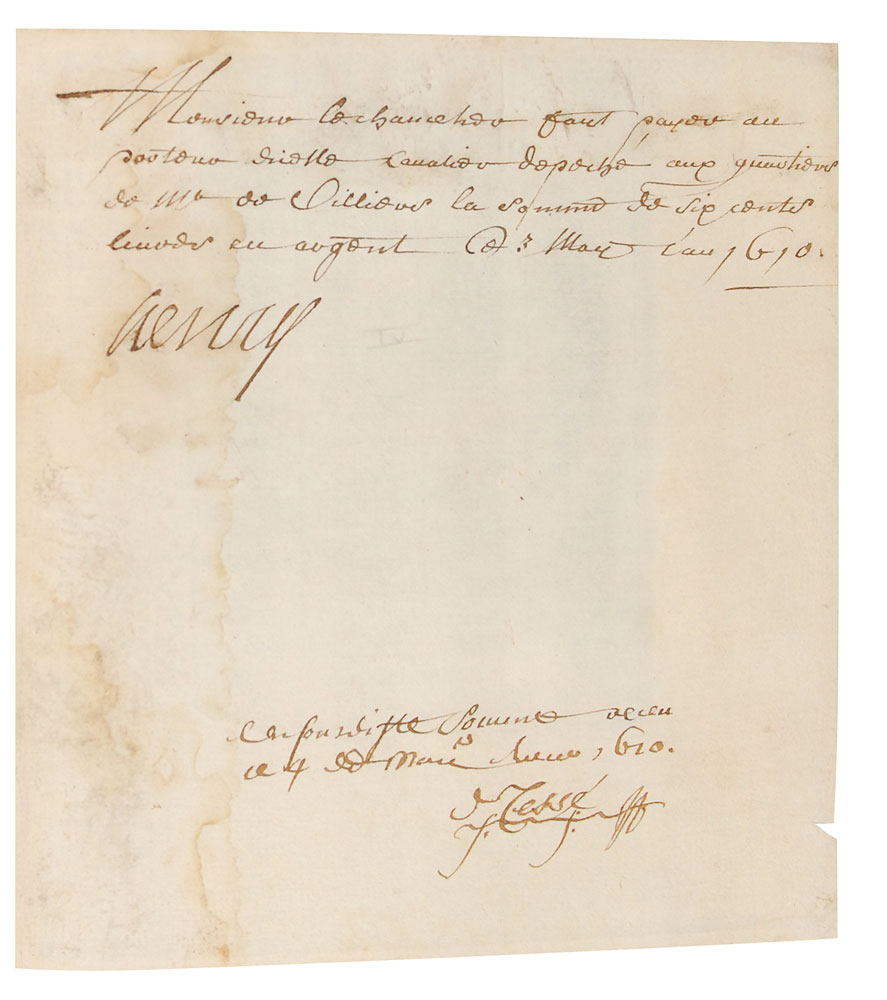 Monsieur le chancelier fault payer au
porteur dicelle cavalier depeché aux quartiers
de Mr de Villiers la somme de six cents
livres en argent Ce 3 May l'an 1610.
henry
somme receu
ce 4 de May Anno 1610.
de Tessé